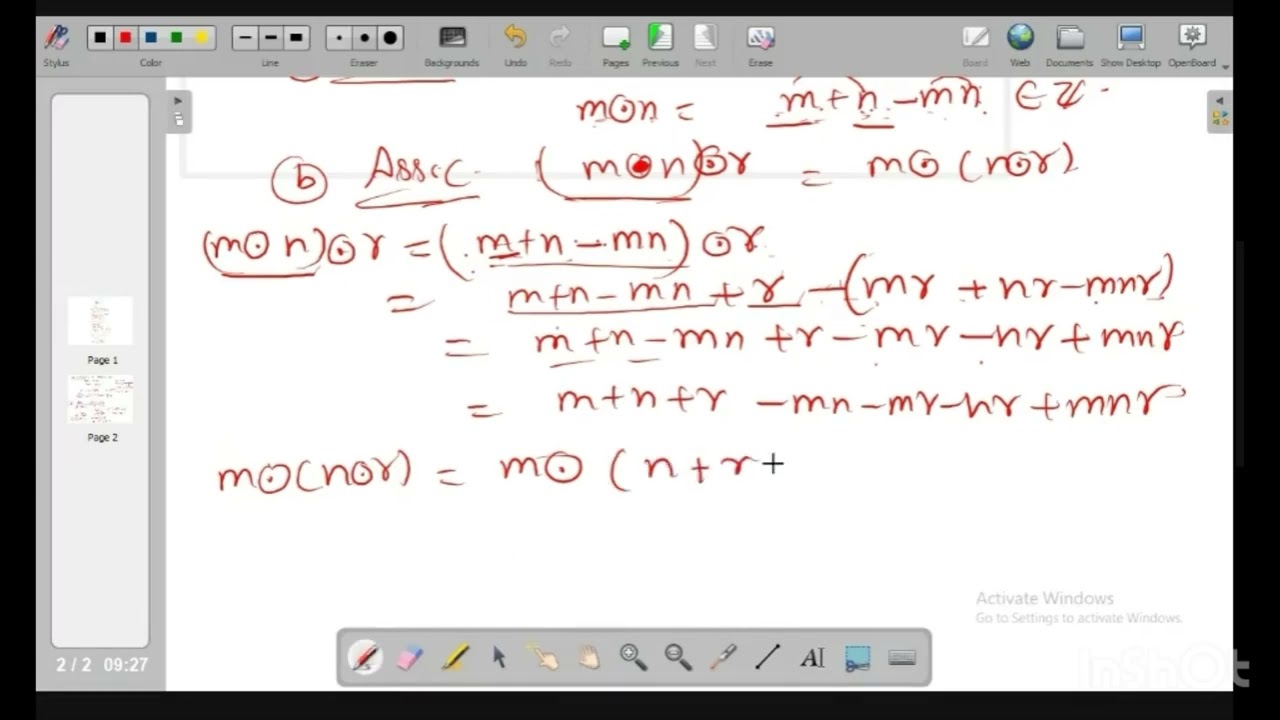 Stylus Color Line Eraser Backgrounds Undo Redo Pages Previous Next Erase Board Web Documents Show Desktop OpenBoard
m⊙n = m+n-mn ∈ ℤ.
(b) Assoc. (m⊙n)⊙r = m⊙(n⊙r)
(m⊙n)⊙r = (m+n-mn)⊙r
= m+n-mn+r-(mr+nr-mnr)
= m+n-mn+r-mr-nr+mnr
= m+n+r-mn-mr-nr+mnr
m⊙(n⊙r) = m⊙(n+r
Page 1
Page 2
Activate Windows
Go to Settings to activate Windows.
2 / 2 09:27
AI
InShOt